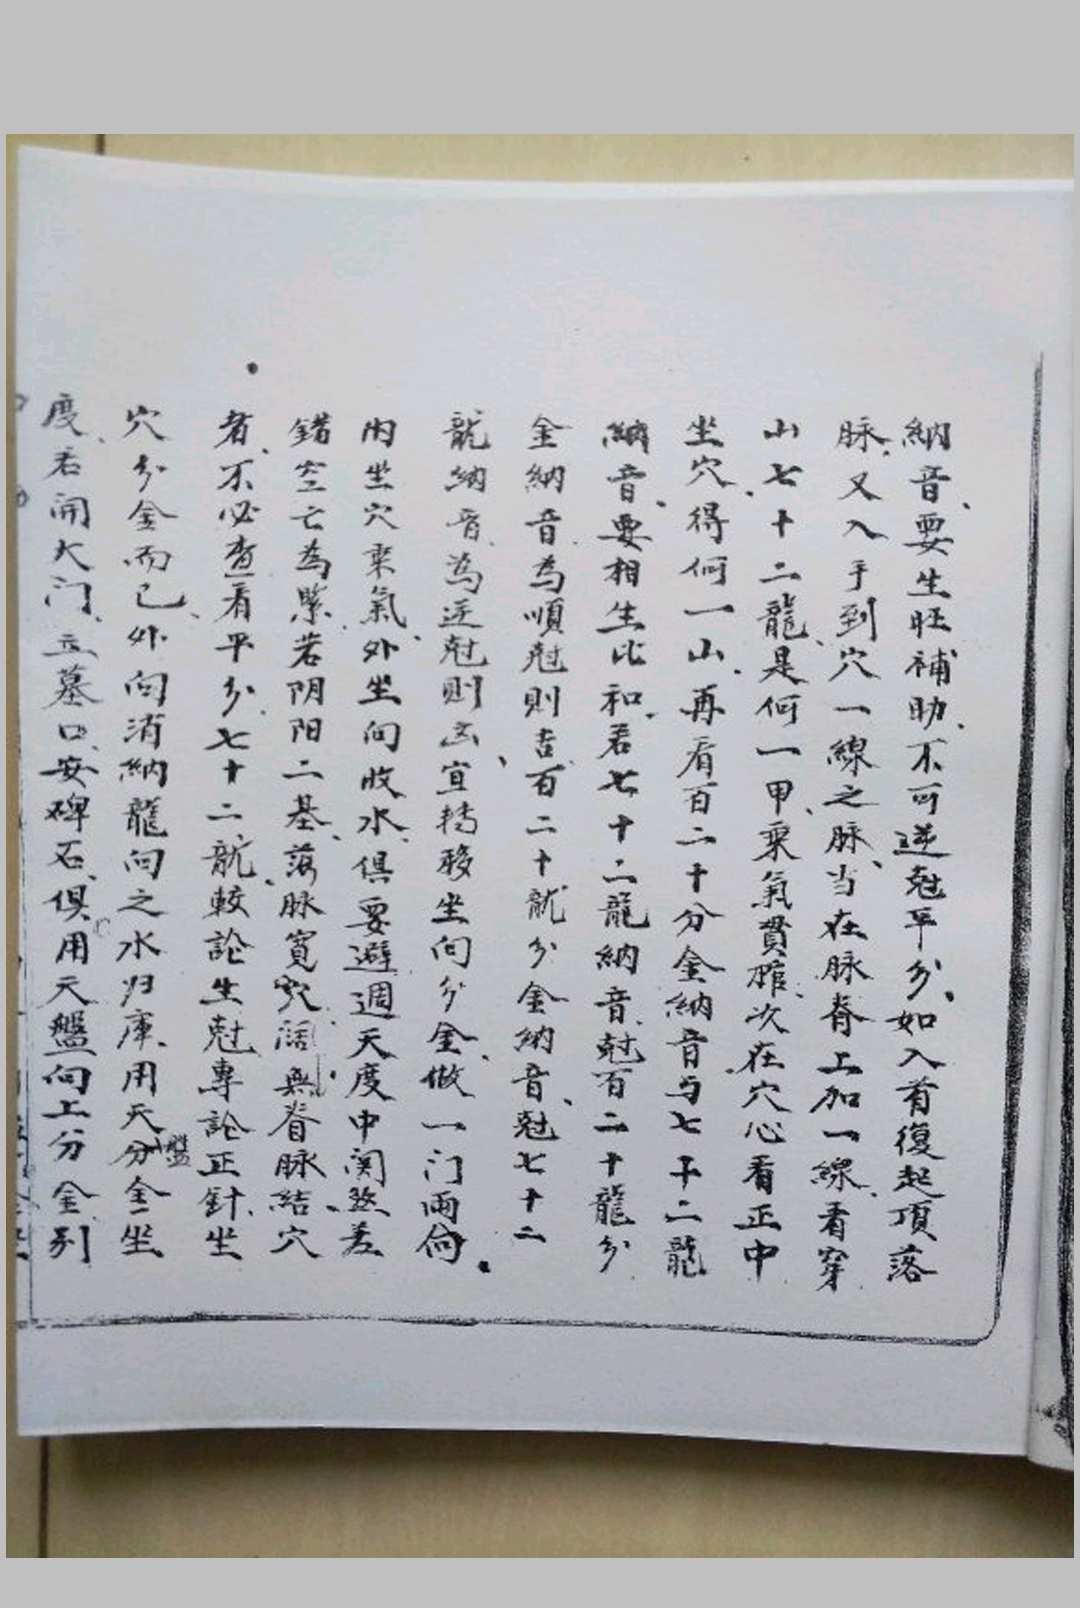 納音、要生旺補助、不可逆尅平分、如入首復起頂落
脉、又入手到穴一線之脉、当在脉脊上加一線、看穿
山七十二龍、是何一甲、乘氣貫棺、次在穴心看正中
坐穴、得何一山、再看百二十分金納音与七十二龍
納音、要相生比和、若七十二龍納音尅百二十龍分
金納音為順尅則吉、百二十龍分金納音、尅七十二
龍納音為逆尅則凶、宜轉移坐向分金、做一门兩向、
内坐穴乘氣、外坐向收水、俱要避週天度中関煞差
錯空亡為緊、若阴阳二基、落脉寬穴濶、無脊脉結穴
者、不必查看平分、七十二龍、較論生尅、專論正針、坐
穴分金而已、外向消納龍向之水归庫、用天盤分金坐
度、若開大门、立墓口、安碑石、俱用天盤向上分金、列